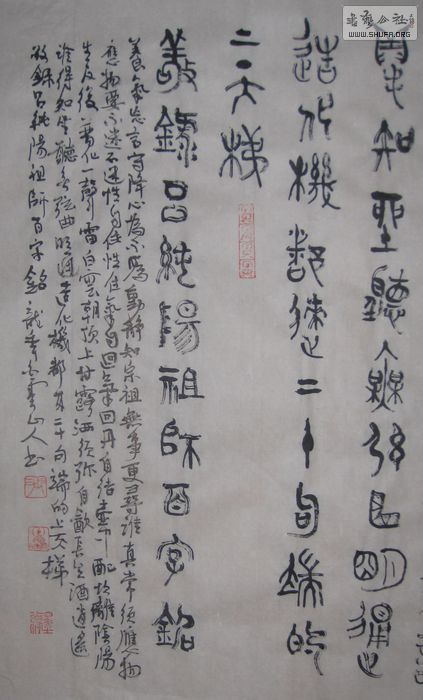 書藝公社
WWW.SHUFA.ORG
知坐聽無弦曲明通
造化機都來二十句端的
上天梯
敬錄呂純陽祖師百字銘
養氣忘言守降心為不為動靜知宗祖無事更尋誰真常須應物
應物要不迷不迷性自住性住氣自回氣回丹自結壺中配坎離陰陽
生反復普化一聲雷白雲朝頂上甘露洒須弥自飲長生酒逍遙
誰得知坐聽無弦曲明通造化機都來二十句端的上天梯
敬錄呂純陽祖師百字銘 山人書